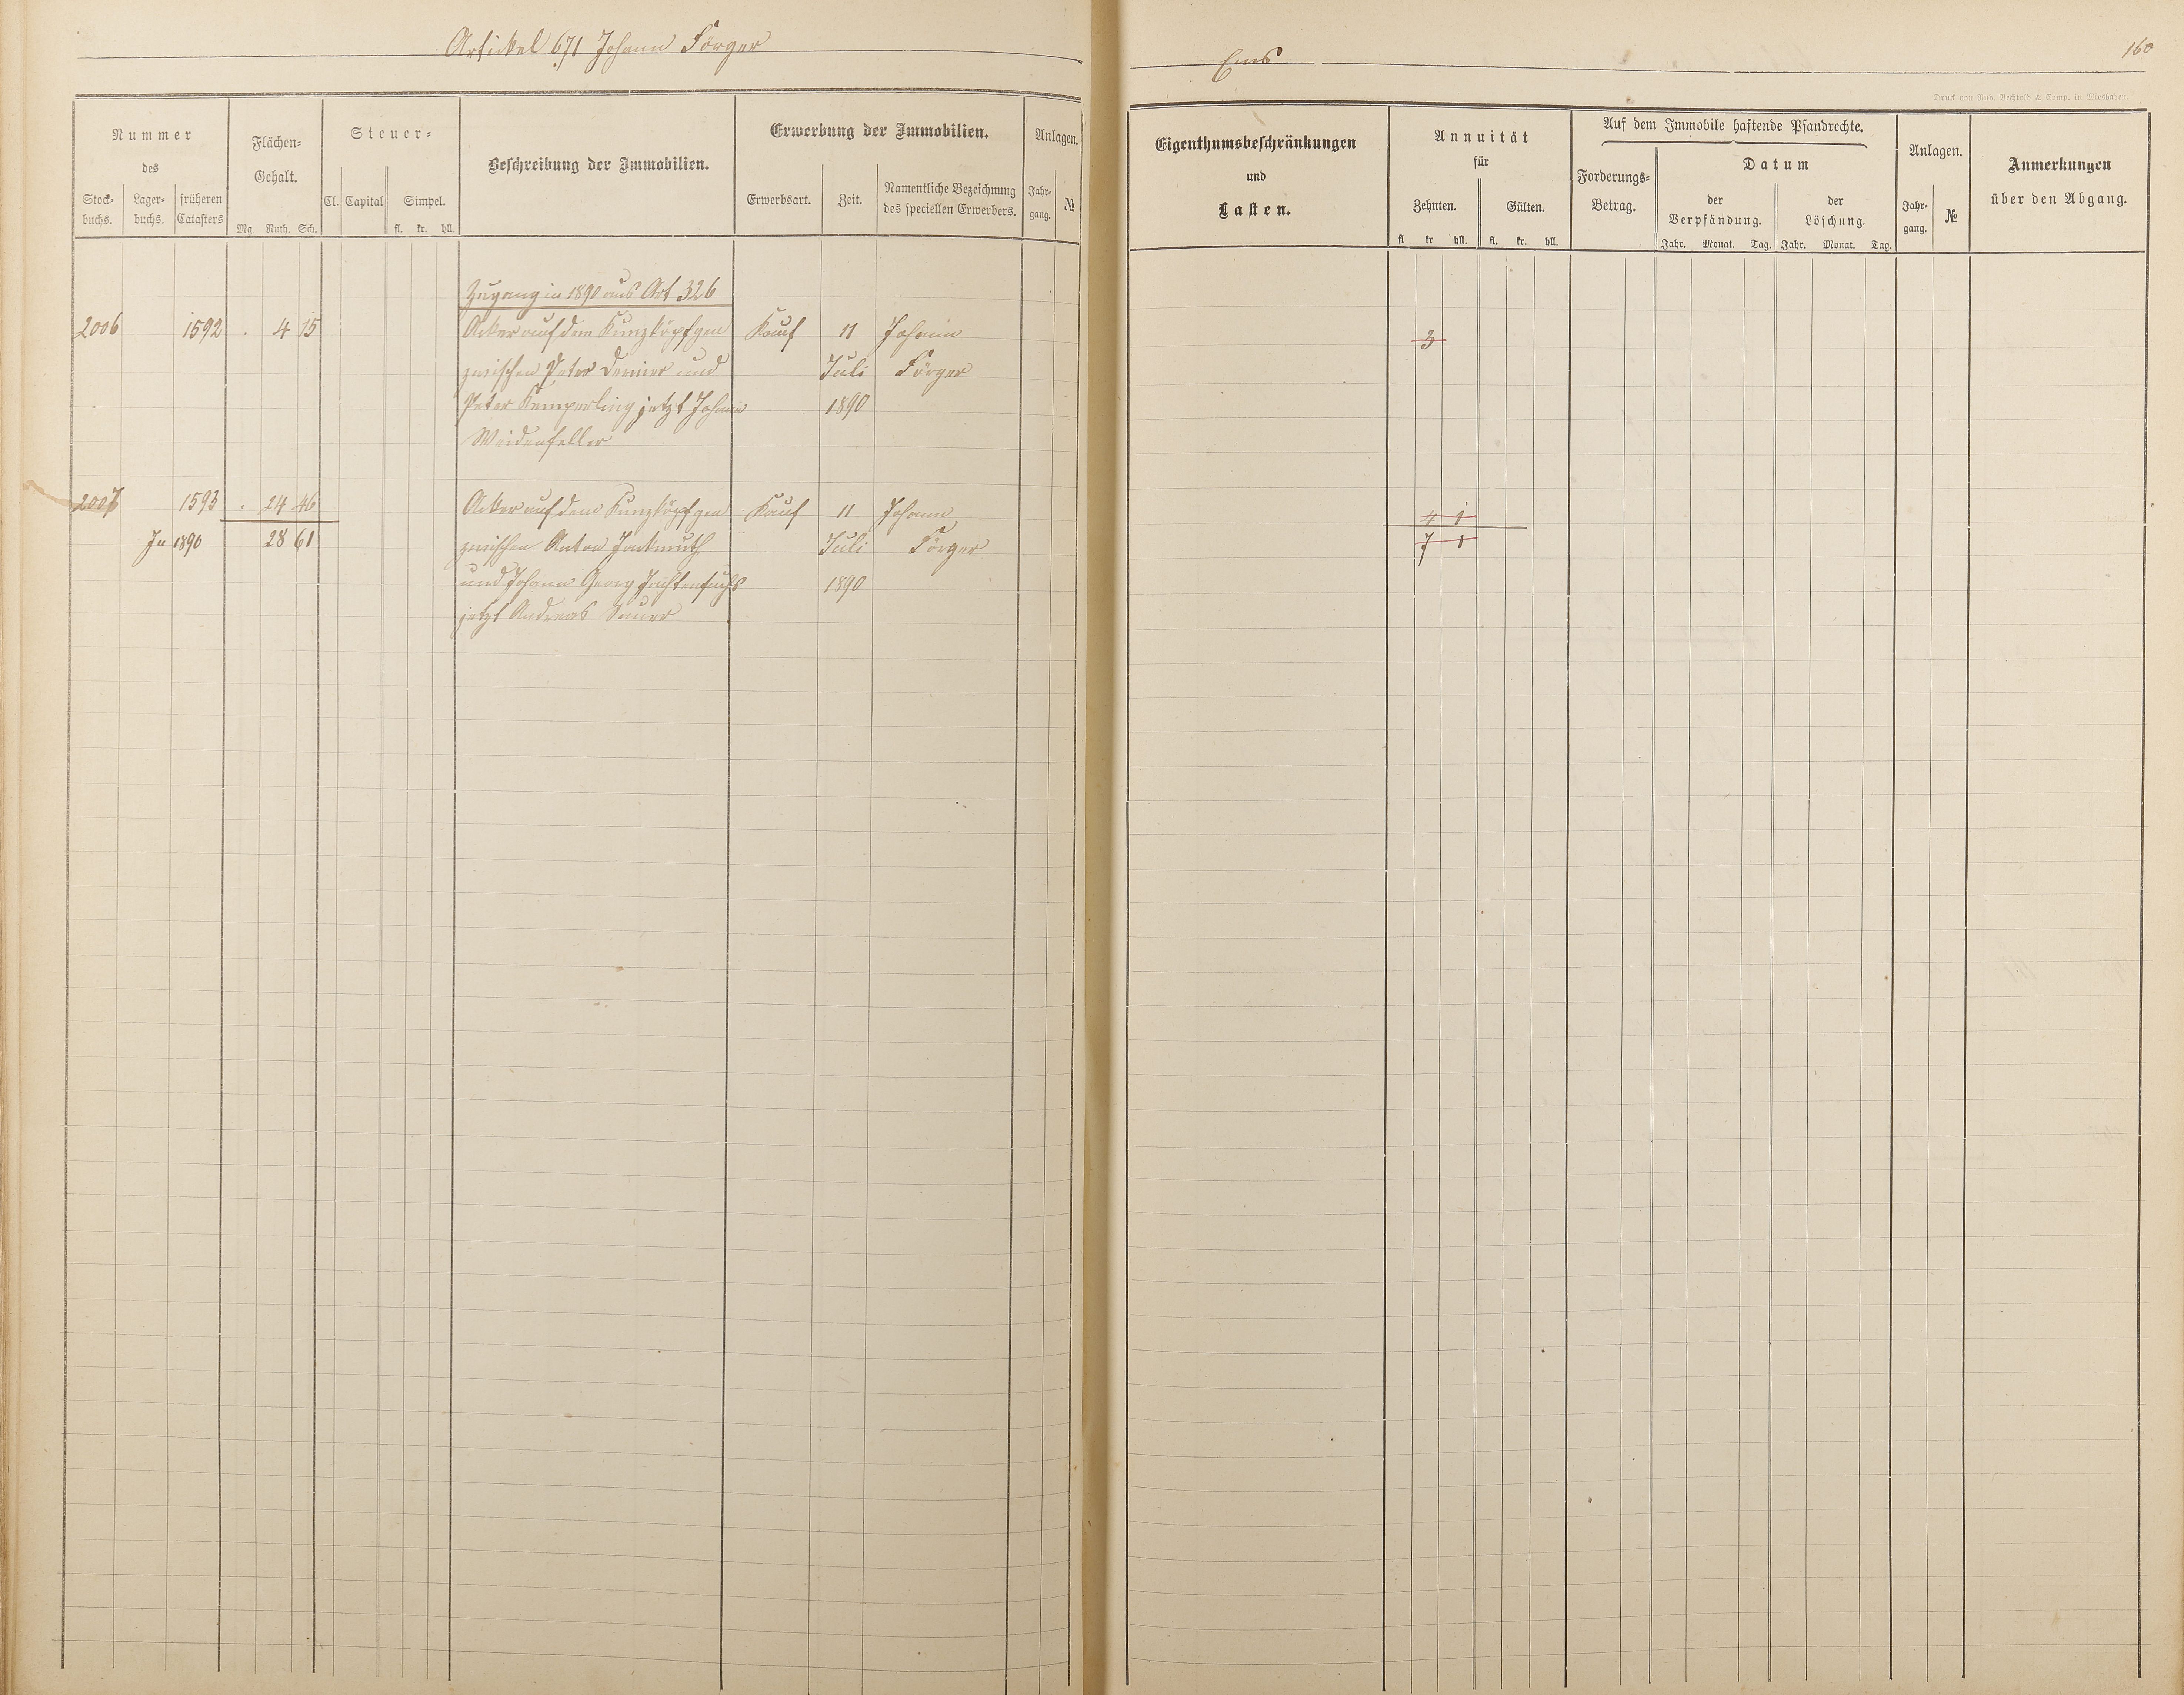 Artickel 671 Johann Förger
Ems
160
Druck von Rud. Bechtold & Comp. in Wiesbaden.
Nummer
des
Stock-
buchs.
Lager-
buchs.
früheren
Catasters
Flächen-
Gehalt.
Mg Ruth. Sch.
Steuer-
Cl. Capital Simpel.
fl. kr. hll.
Beschreibung der Immobilien.
Erwerbung der Immobilien.
Erwerbsart. Zeit.
Namentliche Bezeichnung
des speciellen Erwerbers.
Anlagen.
Jahr-
gang.
№
Eigenthumsbeschränkungen
und
Lasten.
Annuität
für
Zehnten. Gülten.
fl kr hll. fl. kr. hll.
Auf dem Immobile haftende Pfandrechte.
Forderungs-
Betrag.
Datum
der
Verpfändung.
Jahr. Monat. Tag.
der
Löschung.
Jahr. Monat. Tag.
Anlagen.
Jahr-
gang.
№
Anmerkungen
über den Abgang.
Zugang in 1890 aus Art 326
2006 1592 . 4 15 Acker auf dem Kunzköpfgen Kauf 11 Johann 3
zwischen Peter und Juli Förger
Peter Kemperling jetzt Johann 1890
Weidenfeller
2007 1593 . 24 46 Acker auf dem Kunzköpfgen Kauf 11 Johann 4 1
In 1890 28 61 zwischen Anton Juli Förger 7 1
und Johann Georg 1890
jetzt Andreas Sauer